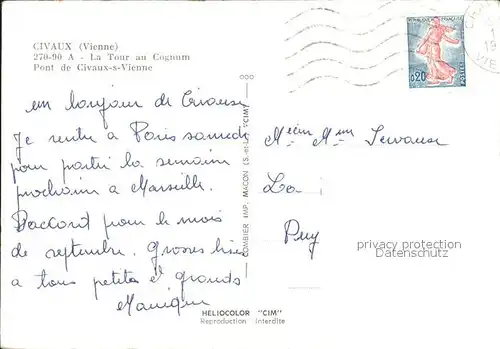 CIVAUX (Vienne)
270-90 A - La Tour au Cognum
Pont de Civaux-s-Vienne
un bonjour de Civaux
Je rentre à Paris samedi
pour partir la semaine
prochaine à Marseille.
D'accord pour le mois
de septembre. Grosses bises
à tous petits et grands
COMBIER IMP. MACON (S.-et-L.) "CIM"
REPUBLIQUE FRANCAISE
0,20
POSTES
Mr Mme
La
Puy
privacy protection
Datenschutz
HELIOCOLOR "CIM"
Reproduction Interdite